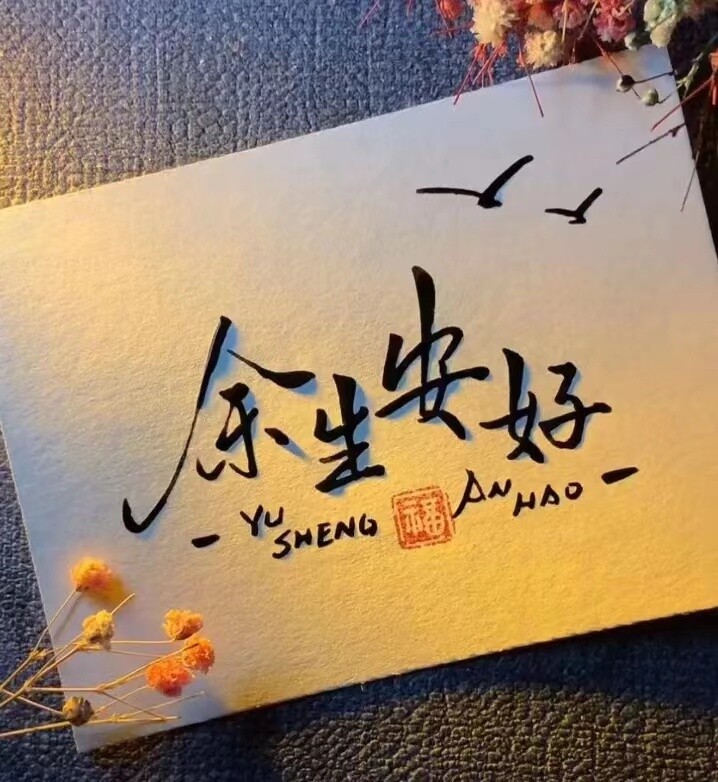 余生安好
- YU SHENG 福 AN HAO -